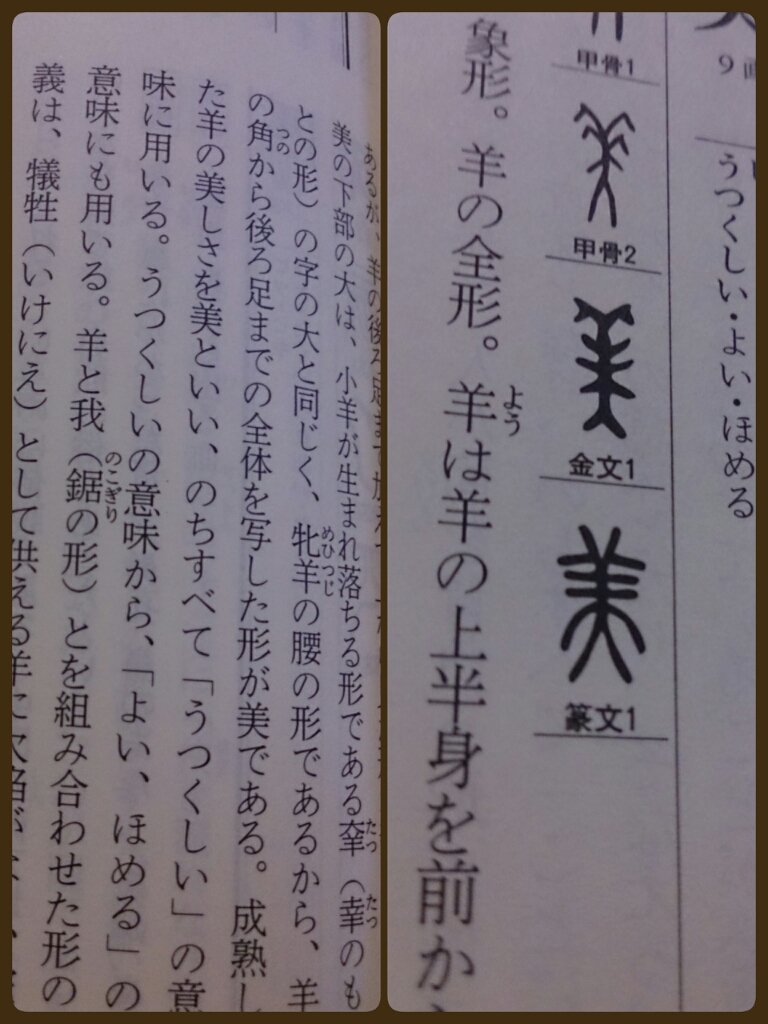 9画
うつくしい・よい・ほめる
甲骨1
甲骨2
金文1
篆文1
よう
象形。羊の全形。羊は羊の上半身を前か
あるが、羊の後ろ足ま
たつ たつ
美の下部の大は、小羊が生まれ落ちる形である羍（幸のも
めひつじ
との形）の字の大と同じく、牝羊の腰の形であるから、羊
つの
の角から後ろ足までの全体を写した形が美である。成熟し
た羊の美しさを美といい、のちすべて「うつくしい」の意
味に用いる。うつくしいの意味から、「よい、ほめる」の
のこぎり
意味にも用いる。羊と我（鋸の形）とを組み合わせた形の
義は、犠牲（いけにえ）として供える羊に欠陥が